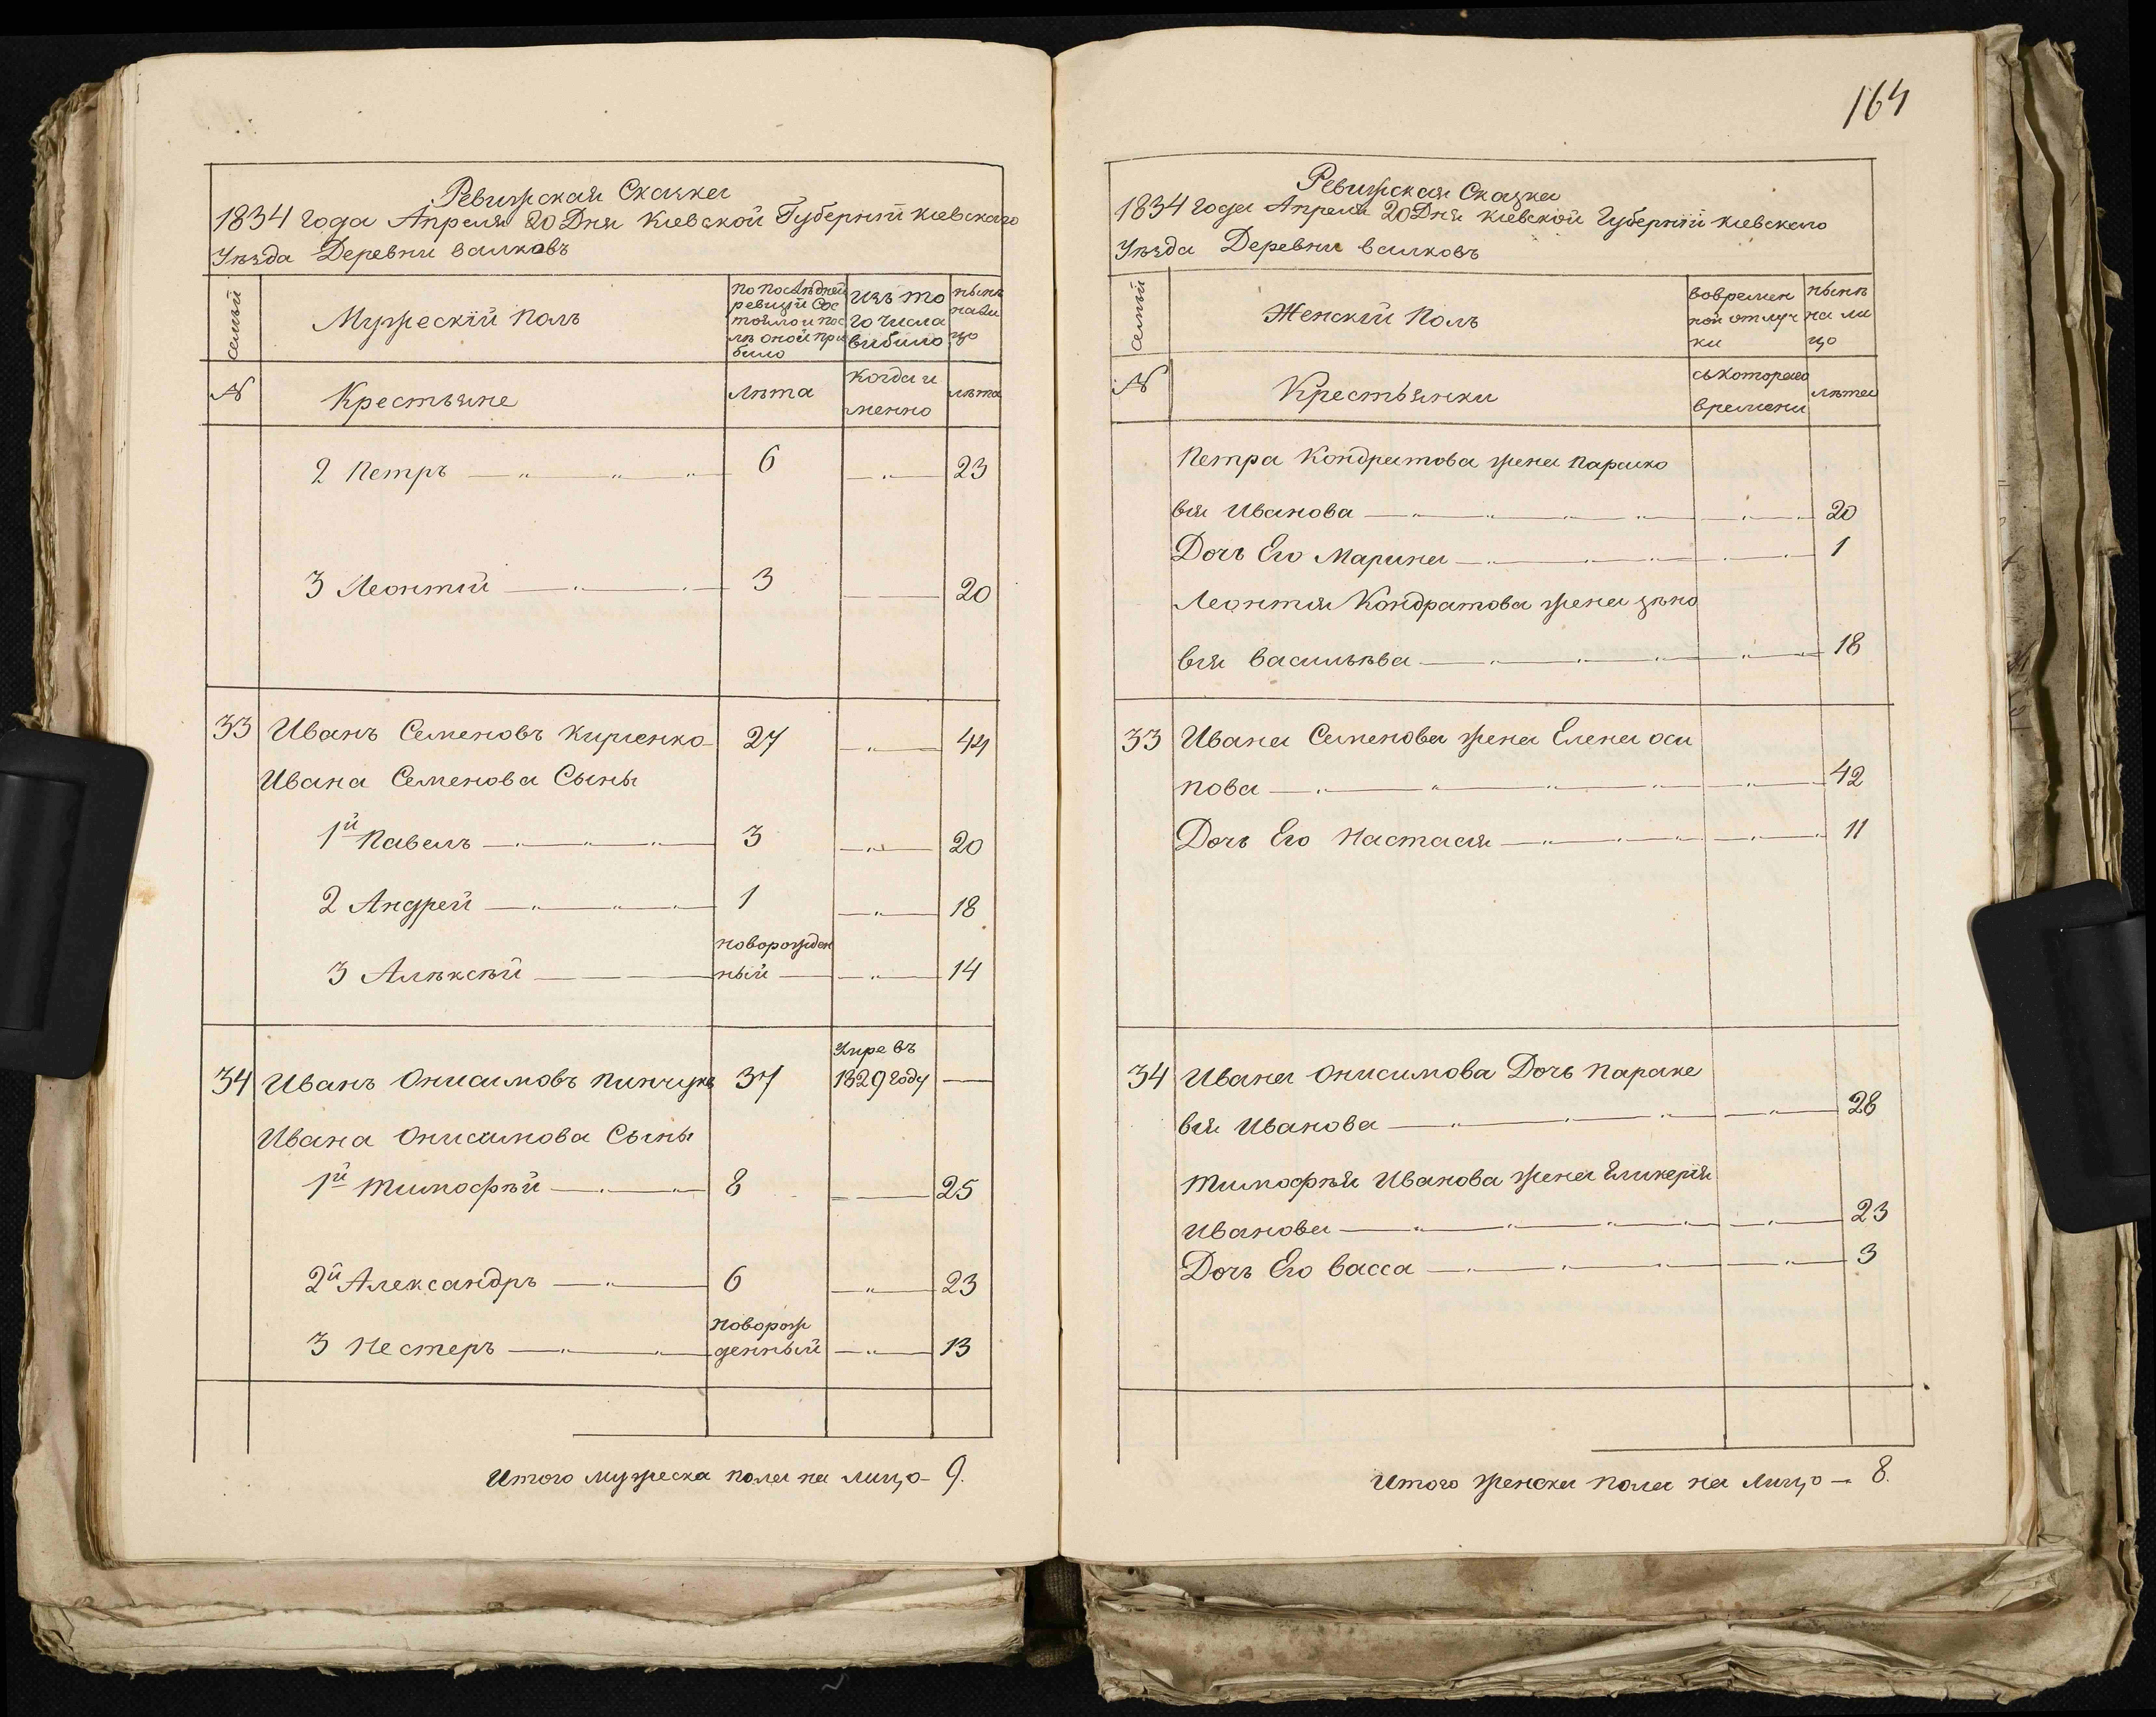 Ревижская Сказка
1834 года Апреля 20 Дня Киевской Губерніи Киевскаго
Уѣзда Деревни Валковъ
семьи
Мужескій Полъ
по последней ревизіи Состояло и послѣ оной прибило
изъ того числа вибило
нынѣ налицо
№
Крестьяне
лѣта
когда именно
лѣта
2 Петръ 6 23
3 Леонтій 3 20
33 Иванъ Семеновъ Кириенко 27 44
Ивана Семенова Сыны
1й Павелъ 3 20
2 Андрей 1 18
3 Алѣксѣй новорожденный 14
34 Иванъ Онисимовъ Пинчукъ 37 Умре въ 1829 году —
Ивана Онисимова Сыны
1й Тимофѣй 8 25
2й Александръ 6 23
3 Нестеръ новорожденный 13
Итого мужеска пола на лицо 9.
164
Ревижская Сказка
1834 года Апреля 20 Дня Киевской Губерніи Киевскаго
Уѣзда Деревни Валковъ
семьи
Женскій Полъ
вовременной отлучки
нынѣ на лицо
№
Крестьянки
съкотораго времени
лѣта
Петра Кондратова жена Параско
вия Иванова 20
Дочь Его Марина 1
Леонтия Кондратова жена зѣно
вия Васильѣва 18
33 Ивана Семенова жена Елена оси
пова 42
Дочь Его Настасия 11
34 Ивана Онисимова Дочь Параске
вия Иванова 28
Тимофѣя Иванова жена Гликерія
Иванова 23
Дочь Его Васса 3
Итого женска пола на лицо — 8.